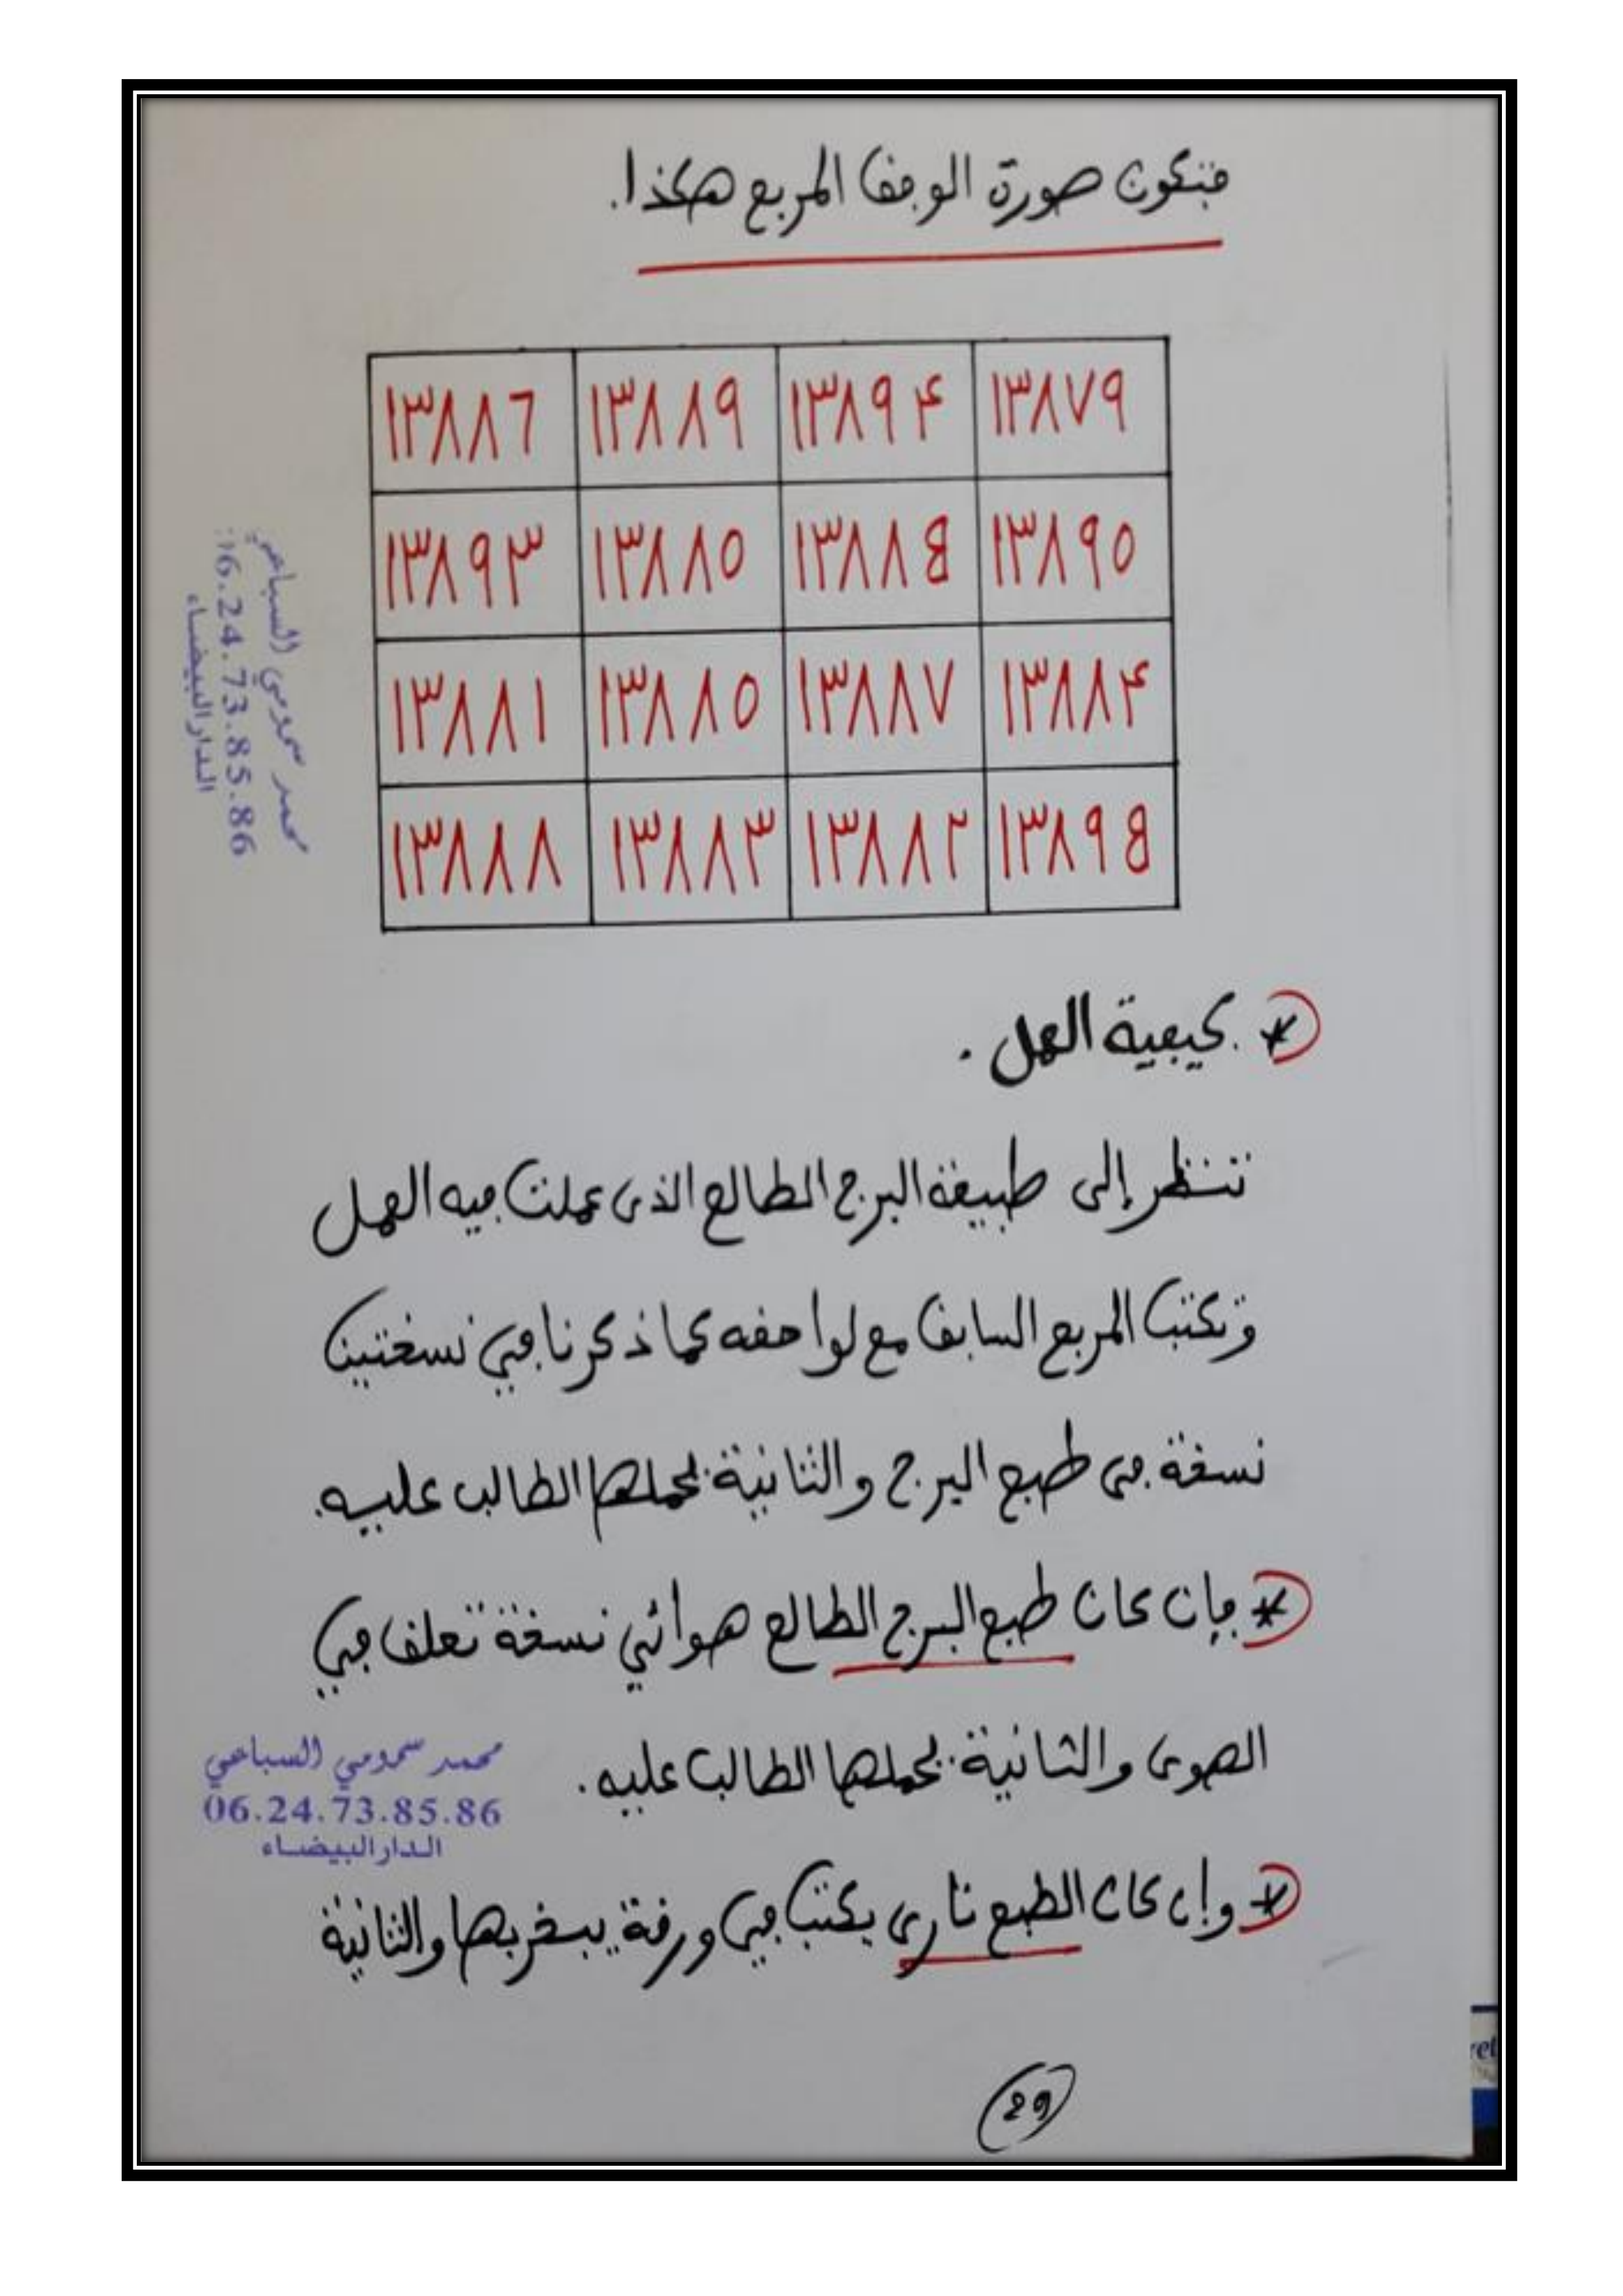 فتكون صورة الوفق المربع هكذا.
١٣٨٨٦ ١٣٨٨٩ ١٣٨٩۴ ١٣٨٧٩
١٣٨٩٣ ١٣٨٨٥ ١٣٨٨B ١٣٨٩٥
١٣٨٨١ ١٣٨٨٥ ١٣٨٨٧ ١٣٨٨۴
١٣٨٨٨ ١٣٨٨٣ ١٣٨٨٢ ١٣٨٩B
محمد سمومي السباعي
06.24.73.85.86
الدار البيضاء
* كيفية العمل.
تنظر إلى طبيعة البرج الطالع الذى عملت فيه العمل
وتكتب المربع السابق مع لواحقه كما ذكرنا في نسختين
نسخة فى طبع البرج والثانية يحملها الطالب عليه.
* فإن كان طبع البرج الطالع هوائي نسخة تعلق في
الهوى والثانية يحملها الطالب عليه.
محمد سمومي السباعي
06.24.73.85.86
الدار البيضاء
* وإن كان الطبع نارى يكتب في ورقة يبخر بها والثانية
29